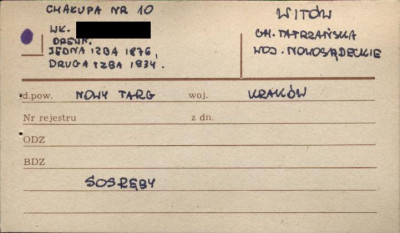 CHAŁUPA NR 10
WK.
DREWN.
JEDNA IZBA 1876,
DRUGA IZBA 1934.
WITÓW
GM. TATRZAŃSKA
WOJ. NOWOSĄDECKIE
d.pow. NOWY TARG woj. KRAKÓW
Nr rejestru z dn.
ODZ
BDZ
SOSRĘBY